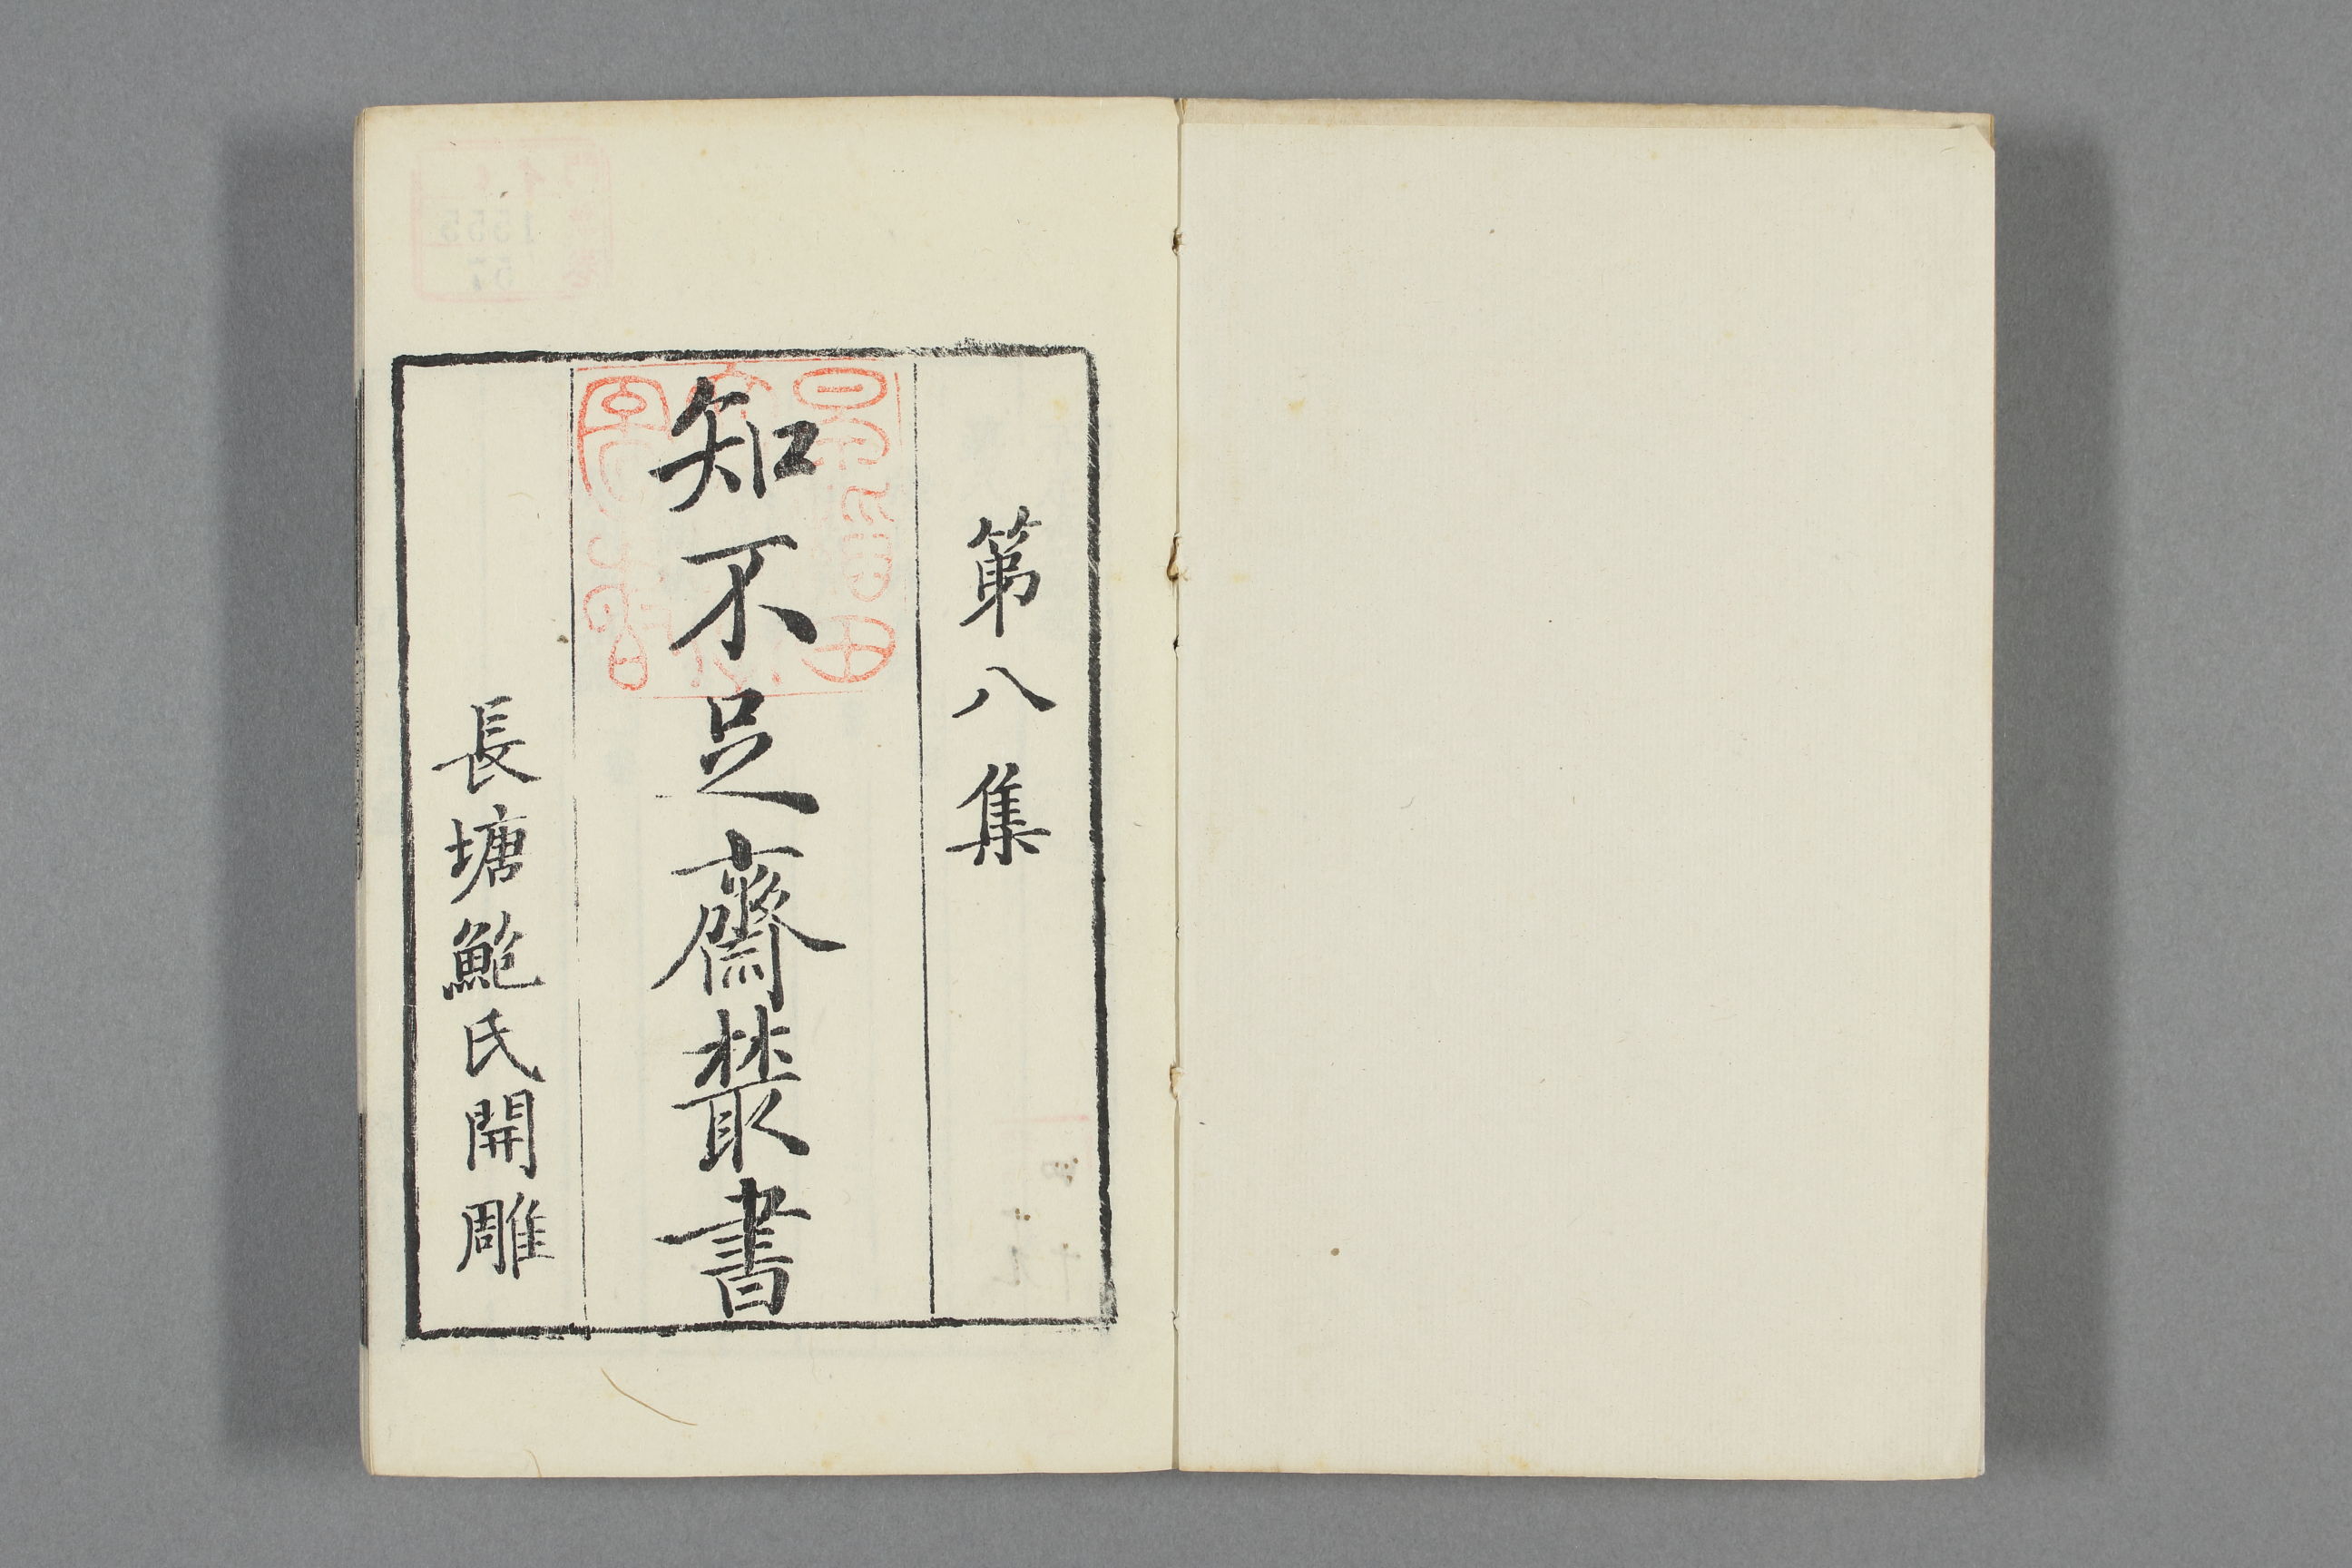 第八集
知不足齋叢書
長塘鮑氏開雕